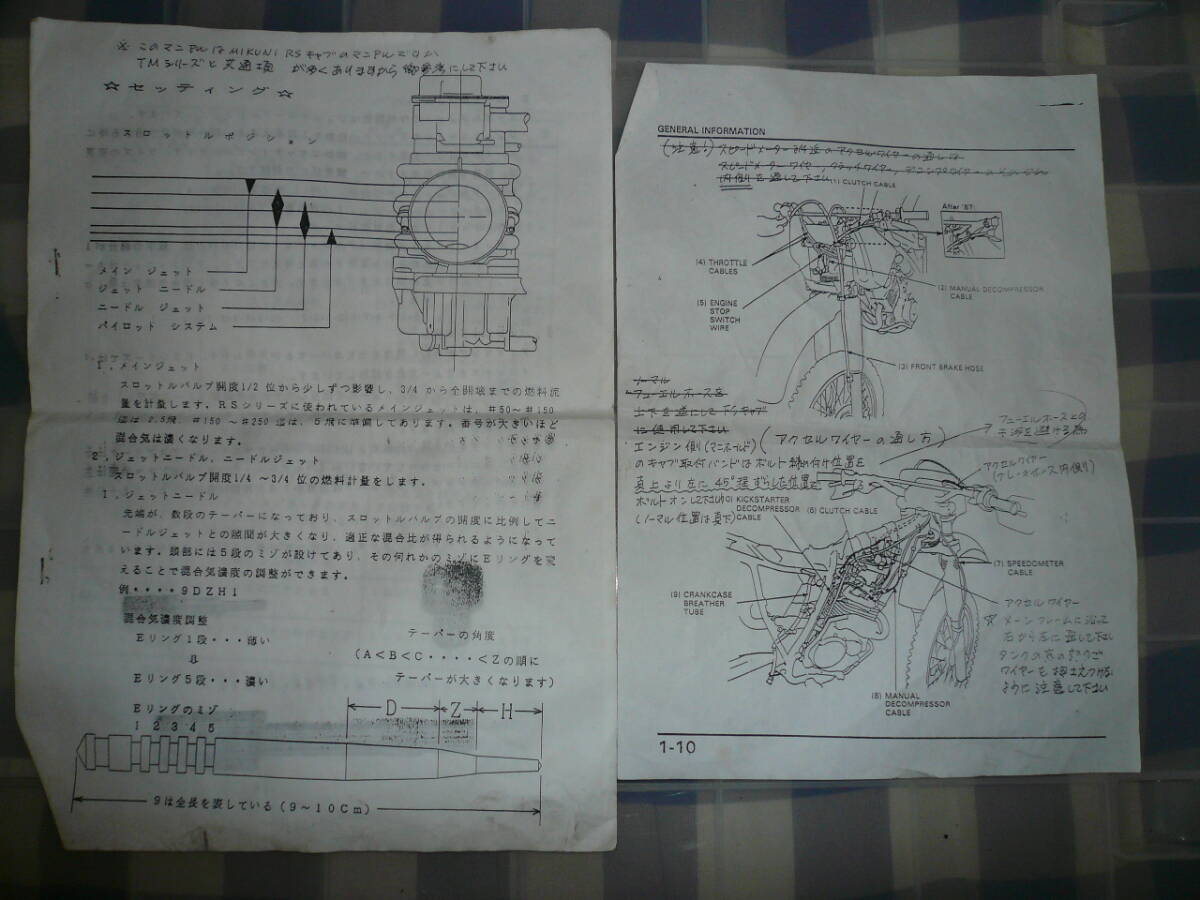 ※ このマニアルはMIKUNI RSキャブのマニアルですが
TMシリーズと共通項が多くありますから御参考にして下さい
☆セッティング☆
スロットルポジション
メイン ジェット
ジェット ニードル
ニードル ジェット
パイロッド システム
1．メインジェット
スロットルバルブ開度1/2 位から少しずつ影響し、3/4 から全開域までの燃料流
量を計量します。RSシリーズに使われているメインジェットは、＃50～＃150
迄は 2.5飛、＃150 ～＃250 迄は、5飛に準備してあります。番号が大きいほど
混合気は濃くなります。
2．ジェットニードル、ニードルジェット
スロットルバルブ開度1/4 ～3/4 位の燃料計量をします。
1．ジェットニードル
先端が、数段のテーパーになっており、スロットルバルブの開度に比例してニ
ードルジェットとの隙間が大きくなり、適正な混合比が得られるようになって
います。頭部には5段のミゾが設けてあり、その何れかのミゾにEリングを変
えることで混合気濃度の調整ができます。
例・・・・9DZH1
混合気濃度調整
Eリング1段・・・薄い
Eリング5段・・・濃い
テーパーの角度
（A＜B＜C・・・・＜Zの順に
テーパーが大きくなります）
Eリングのミゾ
1 2 3 4 5
D Z H
9は全長を表している（9～10Cm）
GENERAL INFORMATION
(注意!) スピードメーター
スピードメーターワイヤー、クラッチワイヤー、
内側を通して下さい
(1) CLUTCH CABLE
After '87:
(4) THROTTLE
CABLES
(2) MANUAL DECOMPRESSOR
CABLE
(5) ENGINE
STOP
SWITCH
WIRE
(3) FRONT BRAKE HOSE
ノーマル
フューエルホースを
に使用して下さい
フューエルホースとの
干渉を避ける為
エンジン側(マニホールド)
(アクセルワイヤーの通し方)
のキャブ取付バンドはボルト締め付け位置を
真上より左に45°程ずらした位置で
ボルトオンして下さい
(ノーマル位置は真下)
アクセルワイヤー
(フレームメイン右内側)
KICKSTARTER
DECOMPRESSOR
CABLE
(6) CLUTCH CABLE
(7) SPEEDOMETER
CABLE
(9) CRANKCASE
BREATHER
TUBE
アクセルワイヤー
☆ メーンフレームに沿って
右から左に通して下さい
タンクの
ワイヤーを押えつける
ように注意して下さい
(8) MANUAL
DECOMPRESSOR
CABLE
1-10